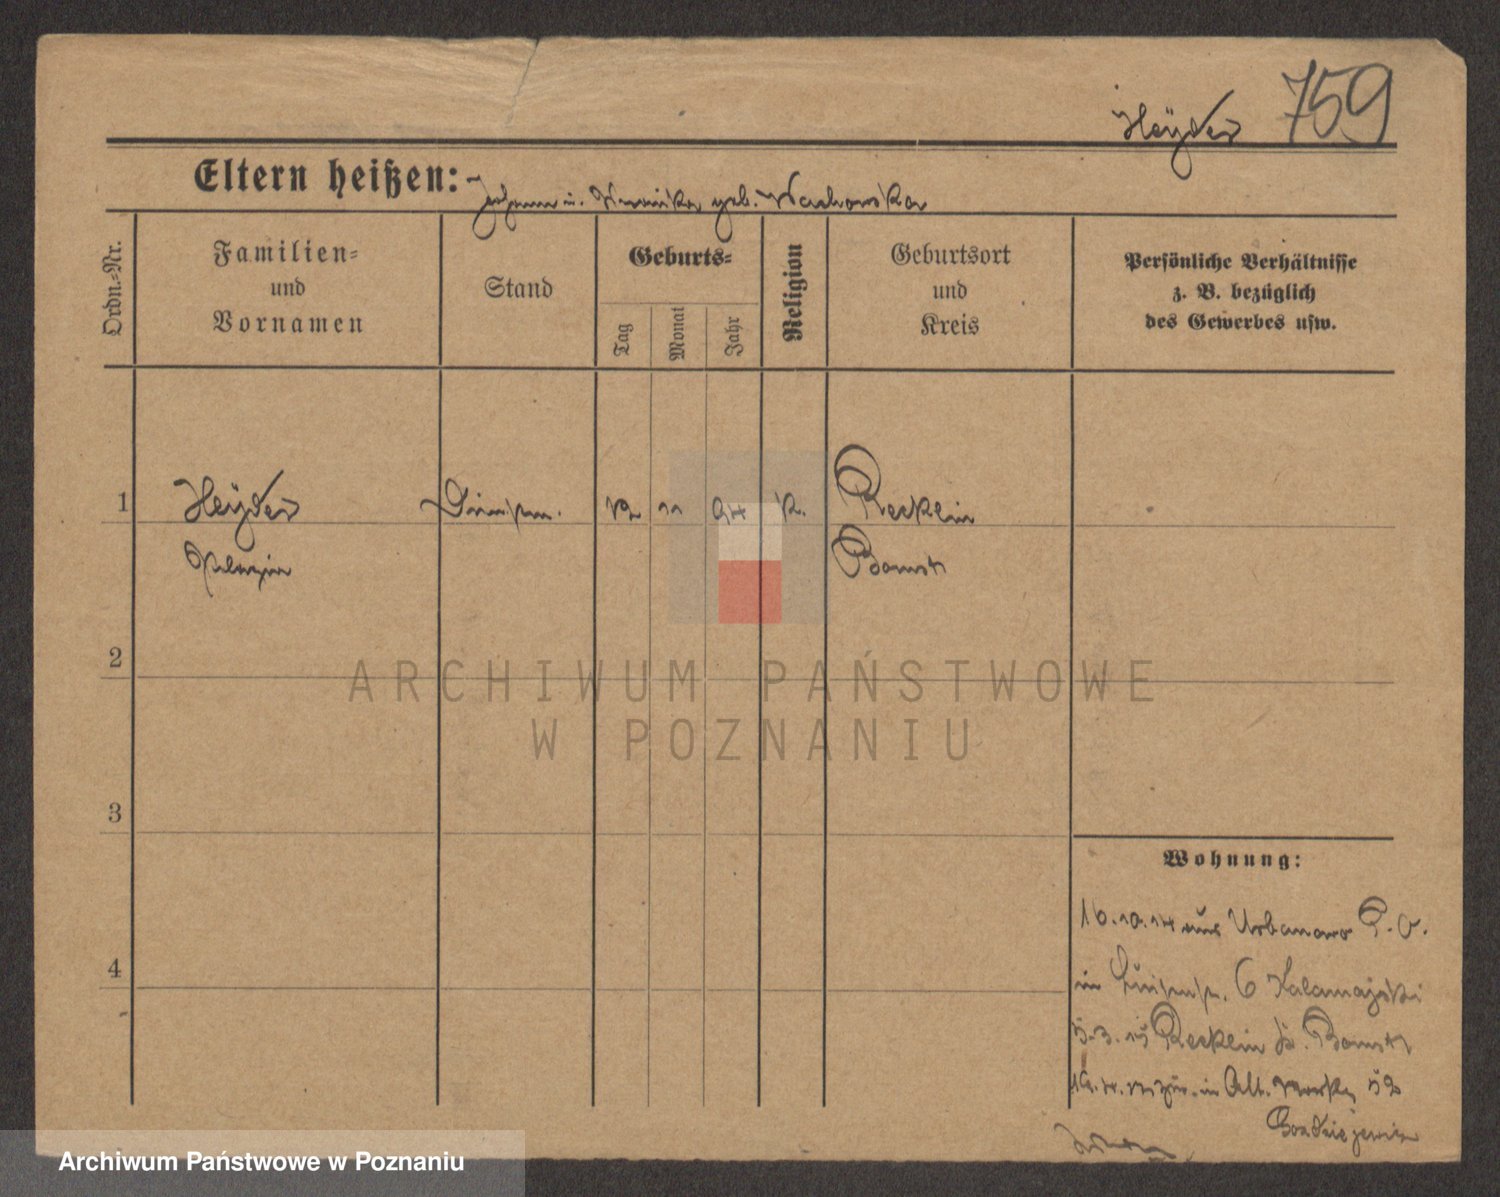 Heÿder 759
Eltern heißen: Johann u. geb. Wachowska
Ordn.=Nr.
Familien=
und
Vornamen
Stand
Geburts=
Tag
Monat
Jahr
Religion
Geburtsort
und
Kreis
Persönliche Verhältnisse
z. B. bezüglich
des Gewerbes usw.
1 Heÿder 12 11 94 k. Recklin
Bomst
2
3
4
Wohnung:
16.10.14 aus Urbanowo P.O.
in Luisenstr. 6 Kalamajski
5.3.15 Recklin Kr. Bomst
zur. in Alt. Markt 52
ARCHIWUM PAŃSTWOWE
W POZNANIU
Archiwum Państwowe w Poznaniu